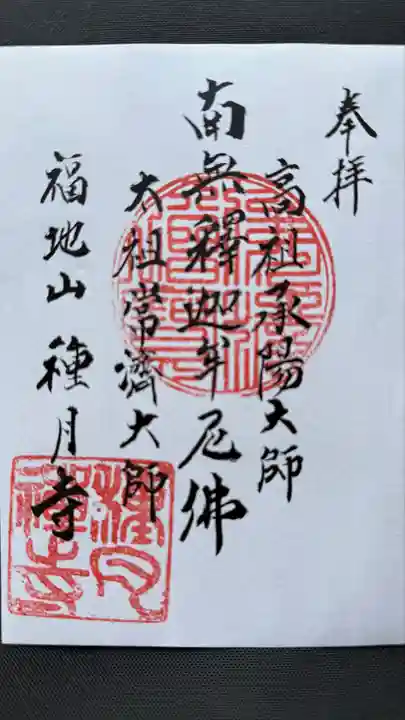 奉拝
高祖承陽大師
南無釋迦牟尼佛
太祖常濟大師
福地山 種月寺
種月
禅寺